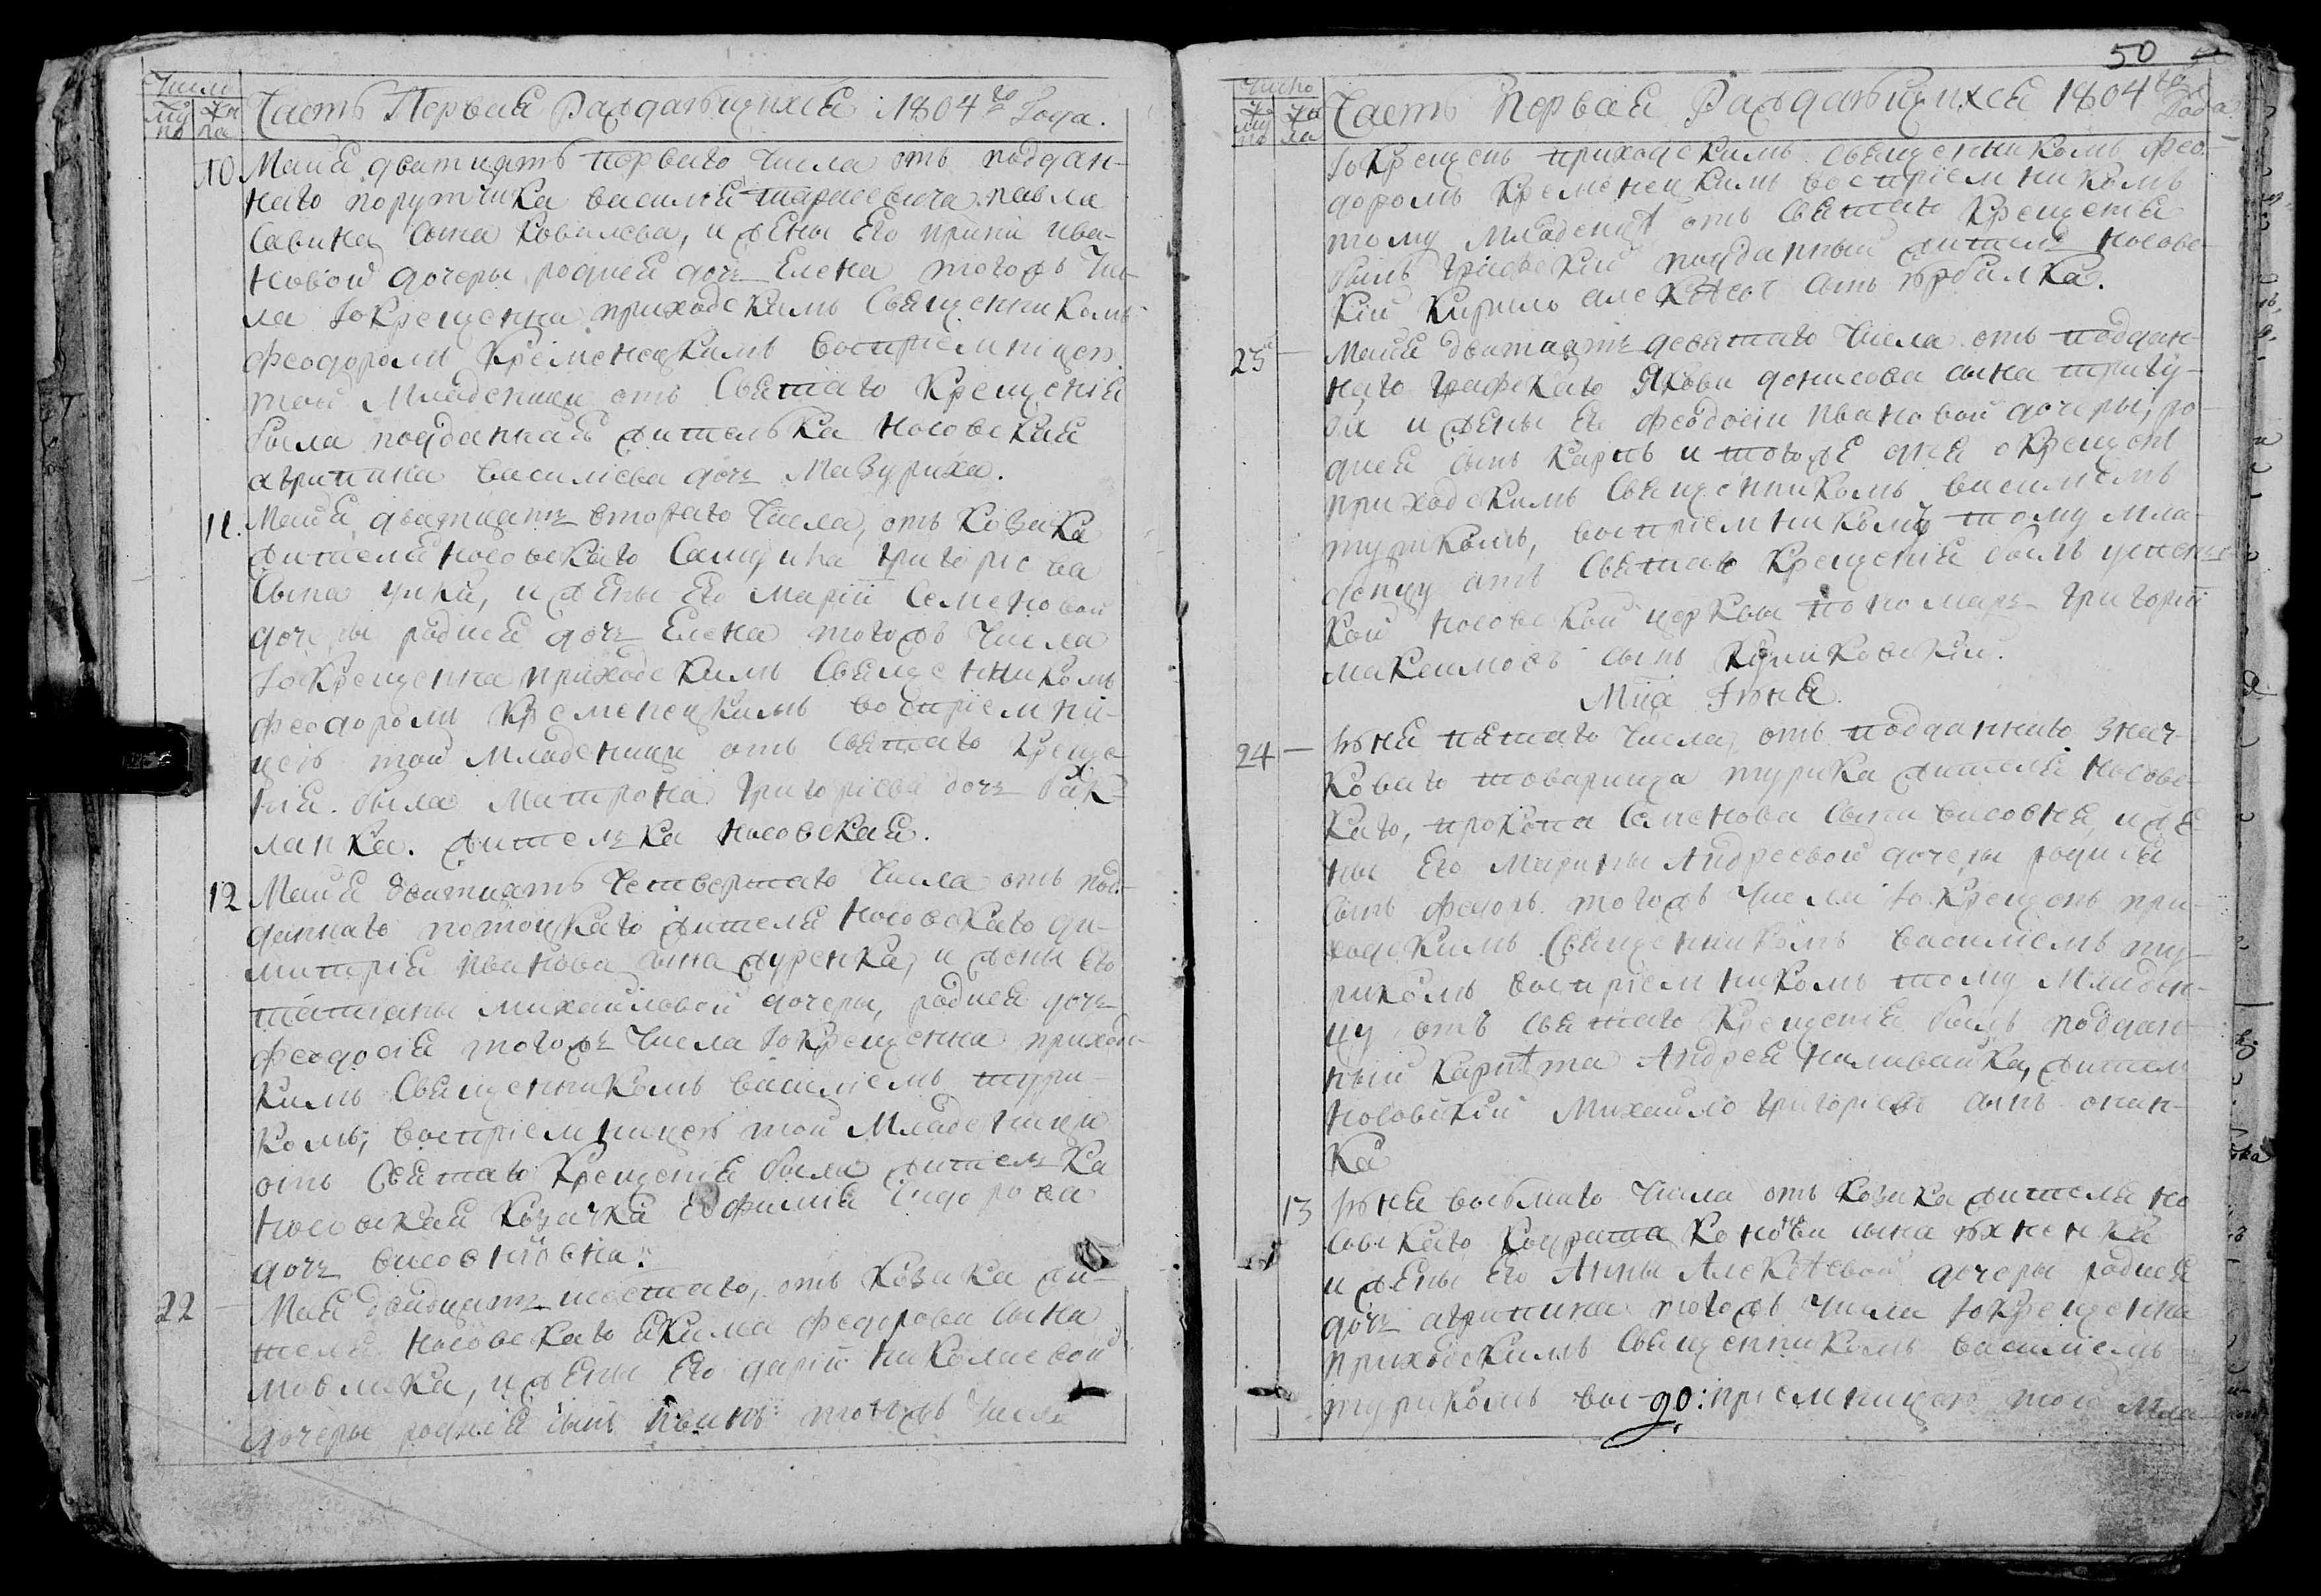 Число
Му Же
по на
Часть Первая Раждающихся 1804го Года.
10 Маия дватцать первого числа отъ поддан-
наго порутчика василия тарасевича павла
савина сына ковалева, и жены Его ирини ива-
новой дочеры родися дочь Елена тогожъ чис-
ла Iокрещенна приходскимъ священникомъ
феодоромъ Кременецкимъ восприемницею
той младеницы отъ святаго крещения
была подданная жителька носовская
агрипина василиева дочь Мазуриха.
11. Маия дватцать втораго числа, отъ козака
жителя носовского самуила григориева
сына и жены его Марiи семеновой
дочеры родися дочь Елена тогожъ числа
Iокрещенна приходскимъ священникомъ
феодоромъ Кременецкимъ восприемни-
цею той младеницы отъ святаго креще-
ния была Матрона григорiева дочь бак-
ланка. жителька носовская.
12 Маия дватцать четвертаго числа отъ под-
даннаго жителя носовского ди-
митрiя иванова сына журенка, и жены его
татианы михайловой дочеры, родися дочь
феодосия тогожъ числа Iокрещенна приходс-
кимъ священникомъ василиемъ тури-
комъ, восприемницею той младеницы
отъ святаго крещения была жителька
носовская козачка Ефимия сидорова
дочь висовнювна.
22 — Мая двадцать шестаго, отъ козака жи-
теля носовского якима федорова сына
мовлика, и жены его дарiи николаевой
дочеры родися сынъ иванъ тогожъ числа
50
Число
Му Же
по на
Часть Первая Раждающихся 1804го Года
Iокрещенъ приходскимъ священникомъ фео-
доромъ Кременецкимъ восприемникомъ
тому младенцу отъ святаго крещения
былъ графский подданный житель носовс-
кiй кирилъ алексѣевъ сынъ
23 — Маия дватцать девятаго числа отъ поддан-
наго графскаго Якова денисова сына тригу-
и жены его феодосiи ивановой дочеры, ро-
дися сынъ карпъ и тогоже дня окрещенъ
приходскимъ священникомъ василиемъ
турикомъ, восприемникомъ тому мла-
денцу отъ святаго крещения былъ успенс-
кой носовской церквы пономарь григорiй
максимовъ сынъ куликовский.
Мца Iюня.
24 — Iюня пятаго числа, отъ подданнаго знач-
коваго товарища турика жителя носовс-
каго, прокопа семенова сына висовня, и же-
ны его Марины Андреевой дочеры родися
сынъ федоръ тогожъ числа Iокрещенъ при-
ходскимъ священникомъ василиемъ ту-
рикомъ восприемникомъ тому младен-
цу отъ святаго крещения былъ поддан-
ный Андрея наливайка, житель
носовский Михайло григориевъ сынъ онан-
ка
13 Iюня восьмаго числа отъ козака жителя но
совскаго кондрата кононова сына юхненка
и жены его Анны Алексѣевой дочеры родися
дочь агрипина тогожъ числа Iокрещенна
приходскимъ священникомъ василиемъ
турикомъ вос-90:приемницею той мла